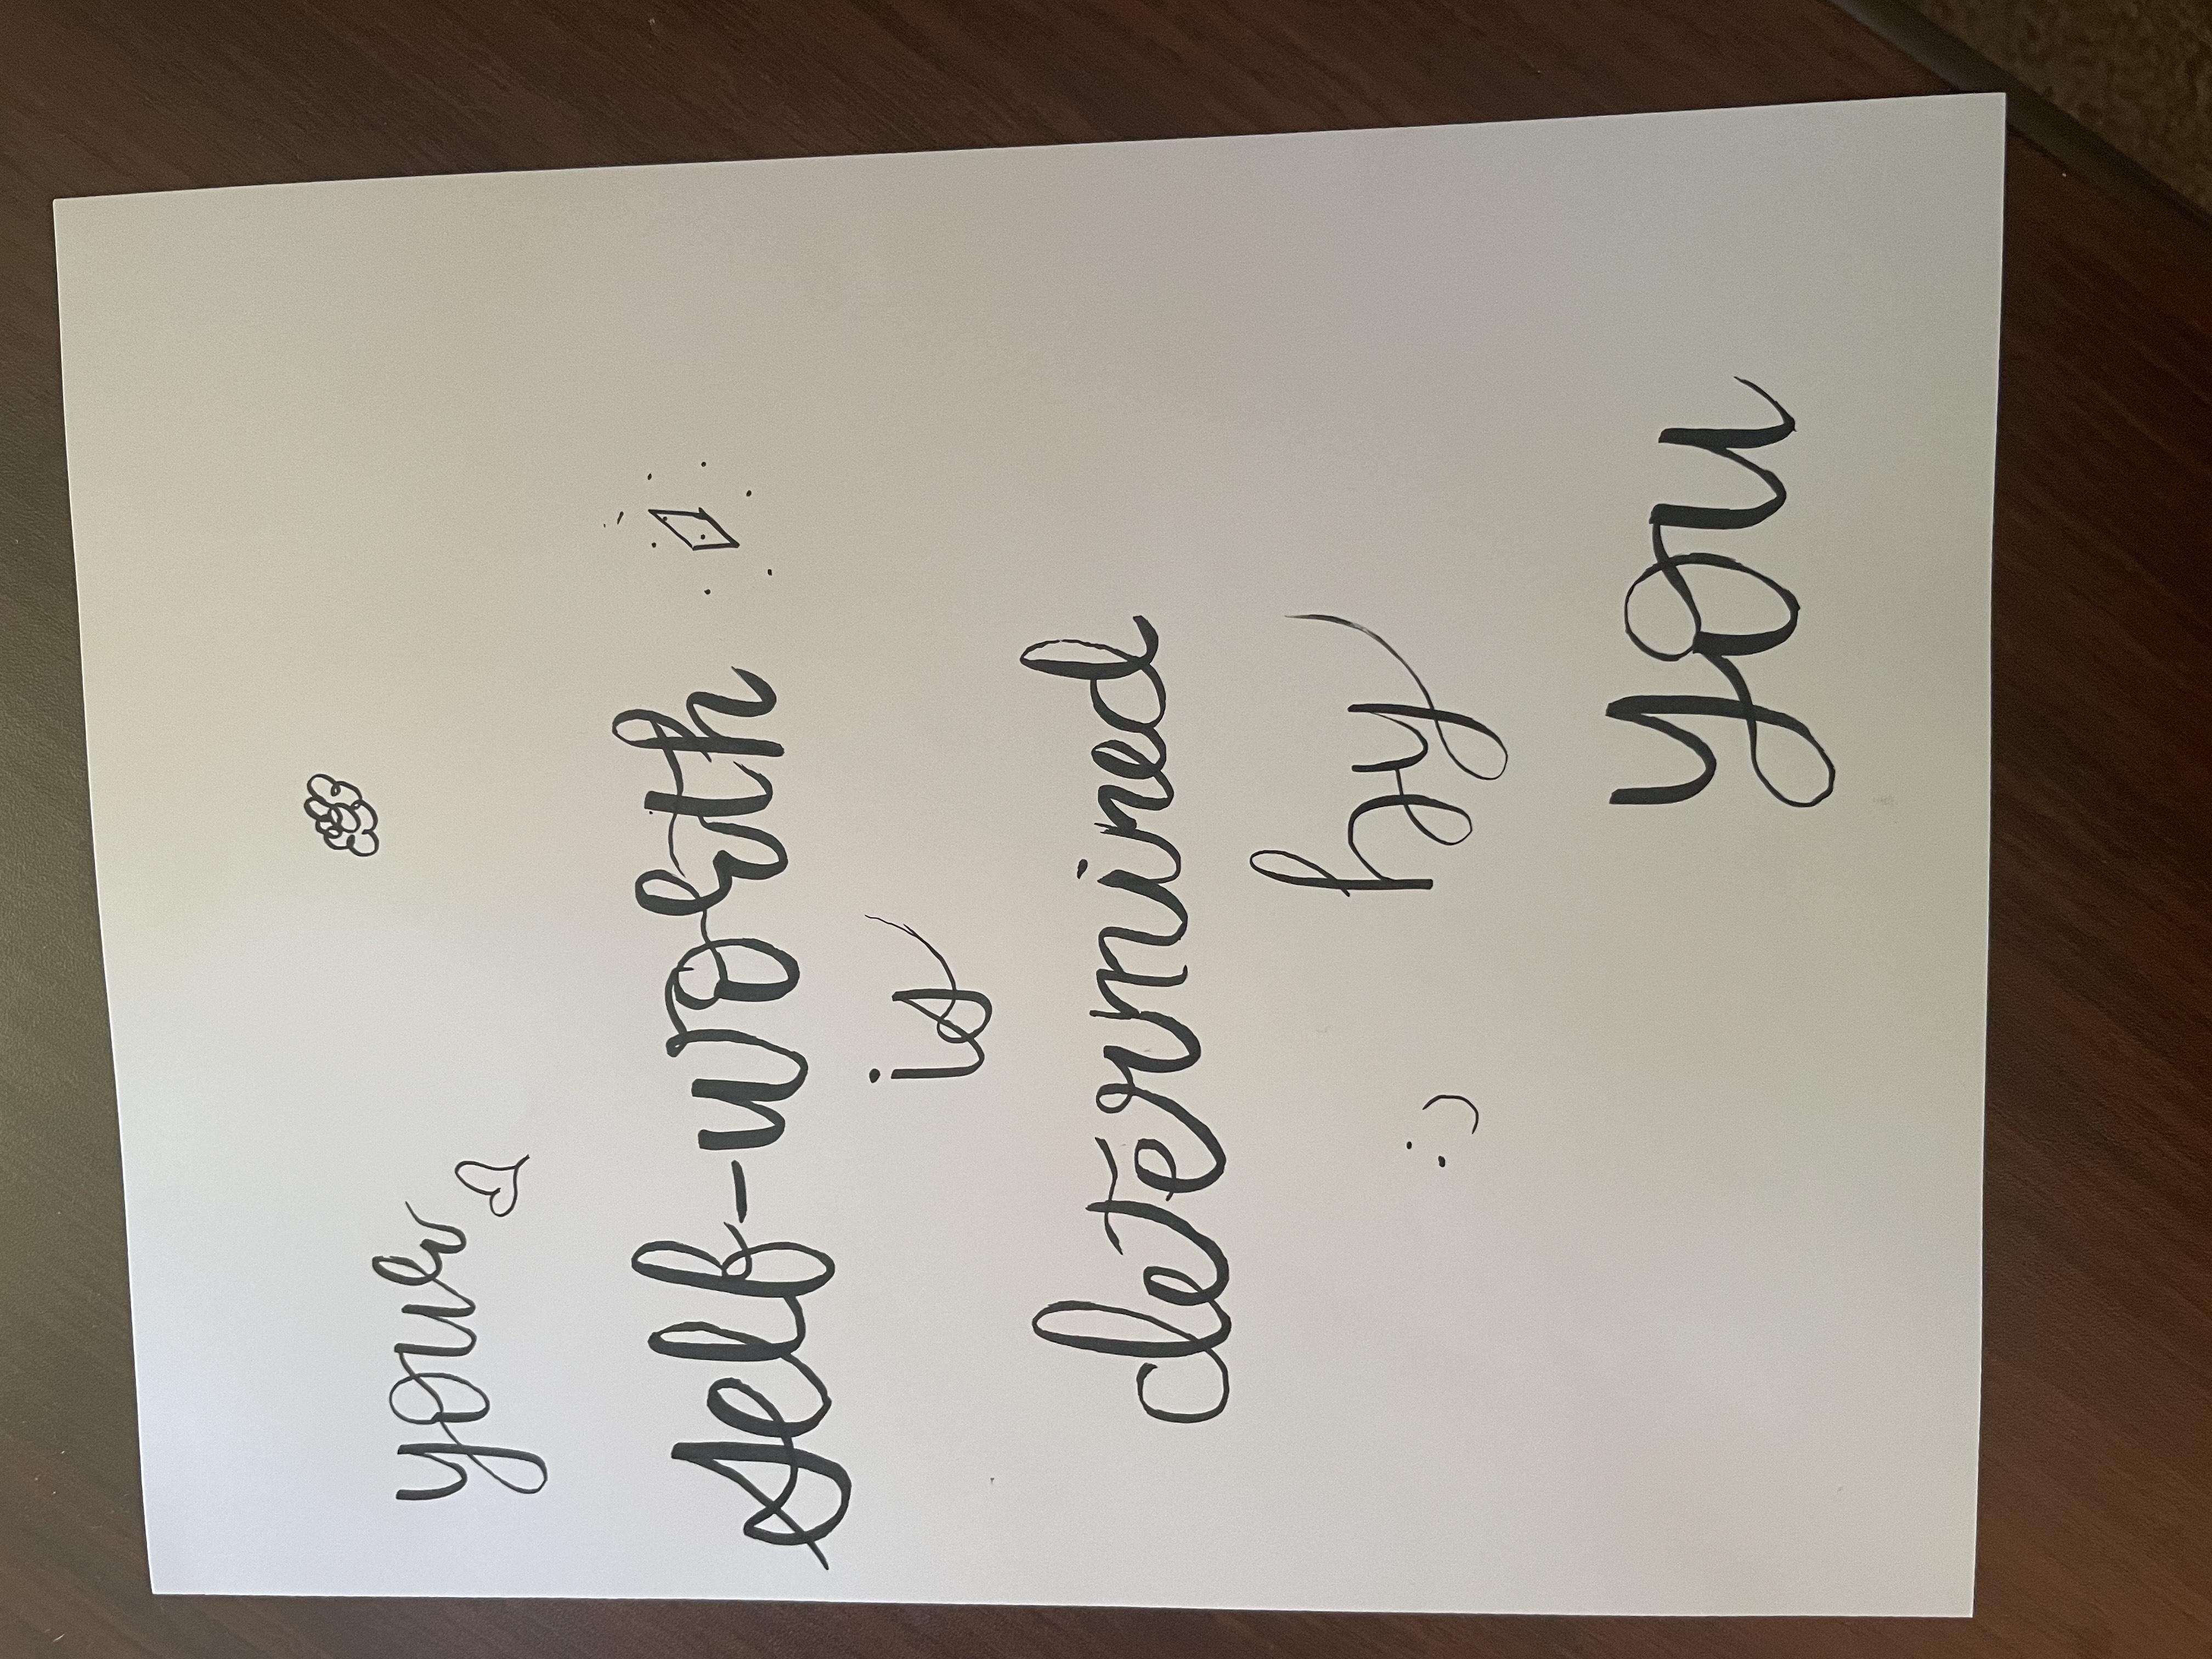 your
self-worth
is
determined
by
:)
you